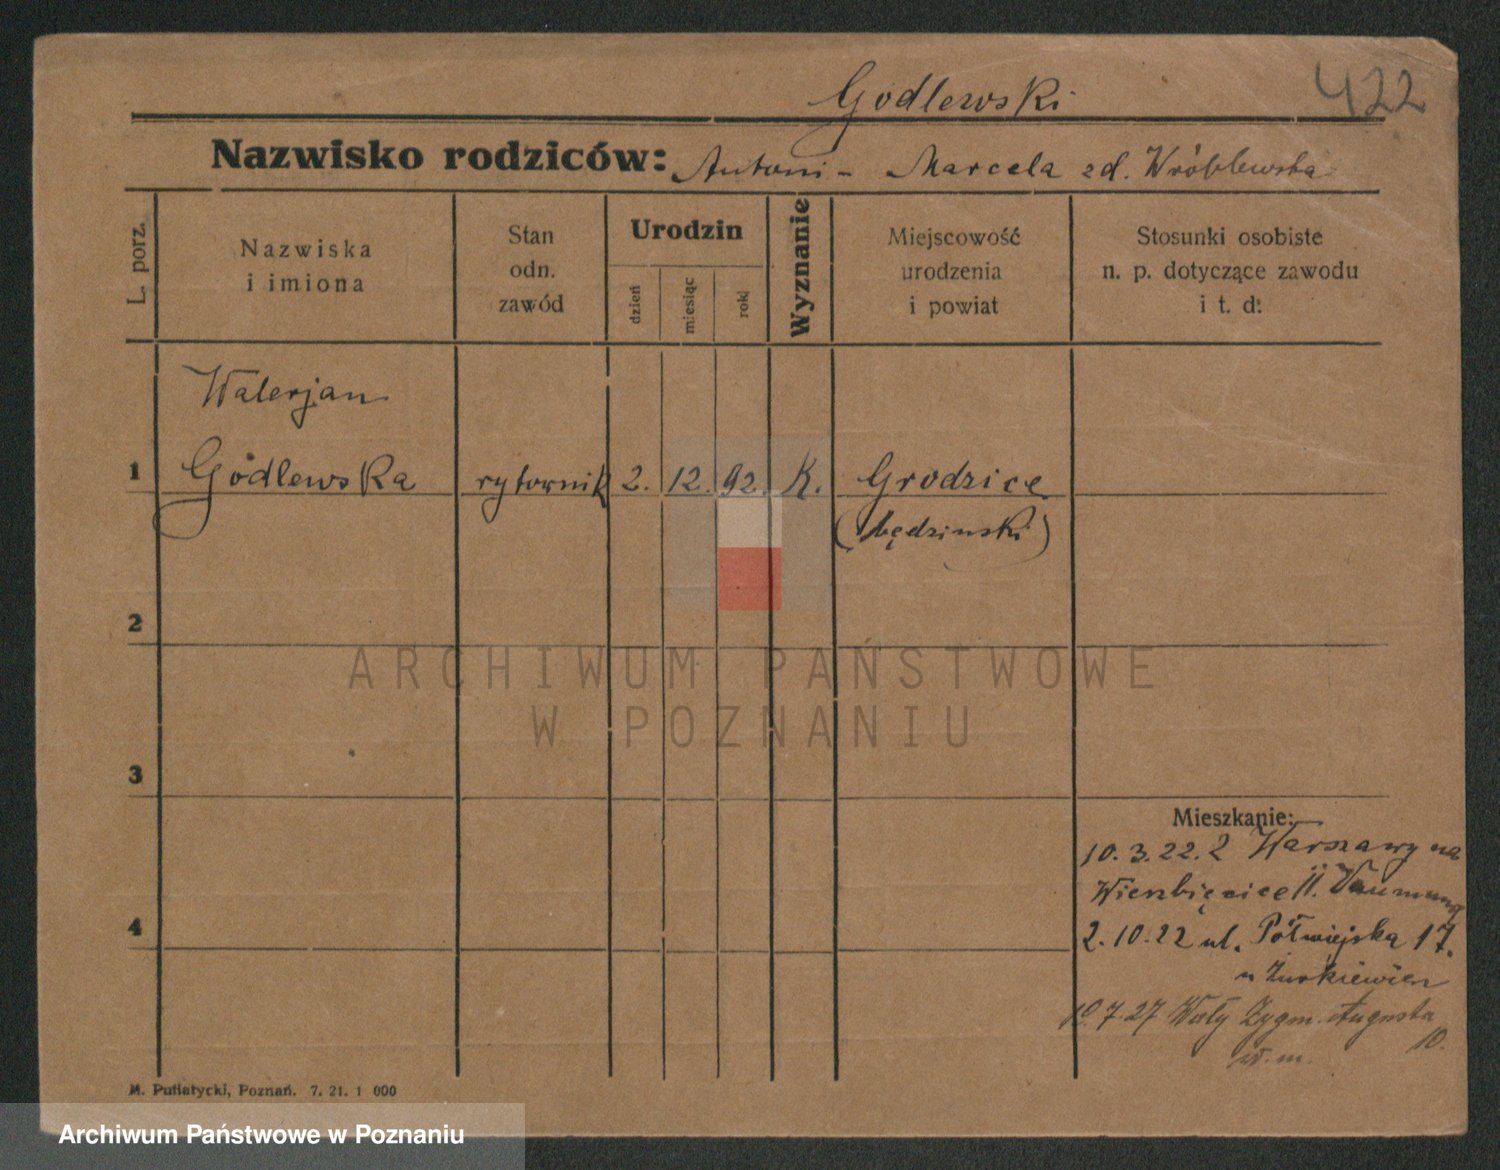 Godlewski 422
Nazwisko rodziców: Antoni - Marcela zd. Wróblewska
L. porz.
Nazwiska
i imiona
Stan
odn.
zawód
Urodzin
dzień
miesiąc
rok
Wyznanie
Miejscowość
urodzenia
i powiat
Stosunki osobiste
n. p. dotyczące zawodu
i t. d.
Walerjan
1 Godlewska rytownik 2. 12. 92. K. Grodzice
(będzinski)
2
ARCHIWUM PAŃSTWOWE
W POZNANIU
3
Mieszkanie:
10.3.22. z Warszawy na
Wierzbięcice 11.
4
2.10.22 ul. Półwiejska 17.
u
10.7.27 Wały Zygm. Augusta
10.
w. m.
M. Putiatycki, Poznań. 7. 21. 1 000
Archiwum Państwowe w Poznaniu